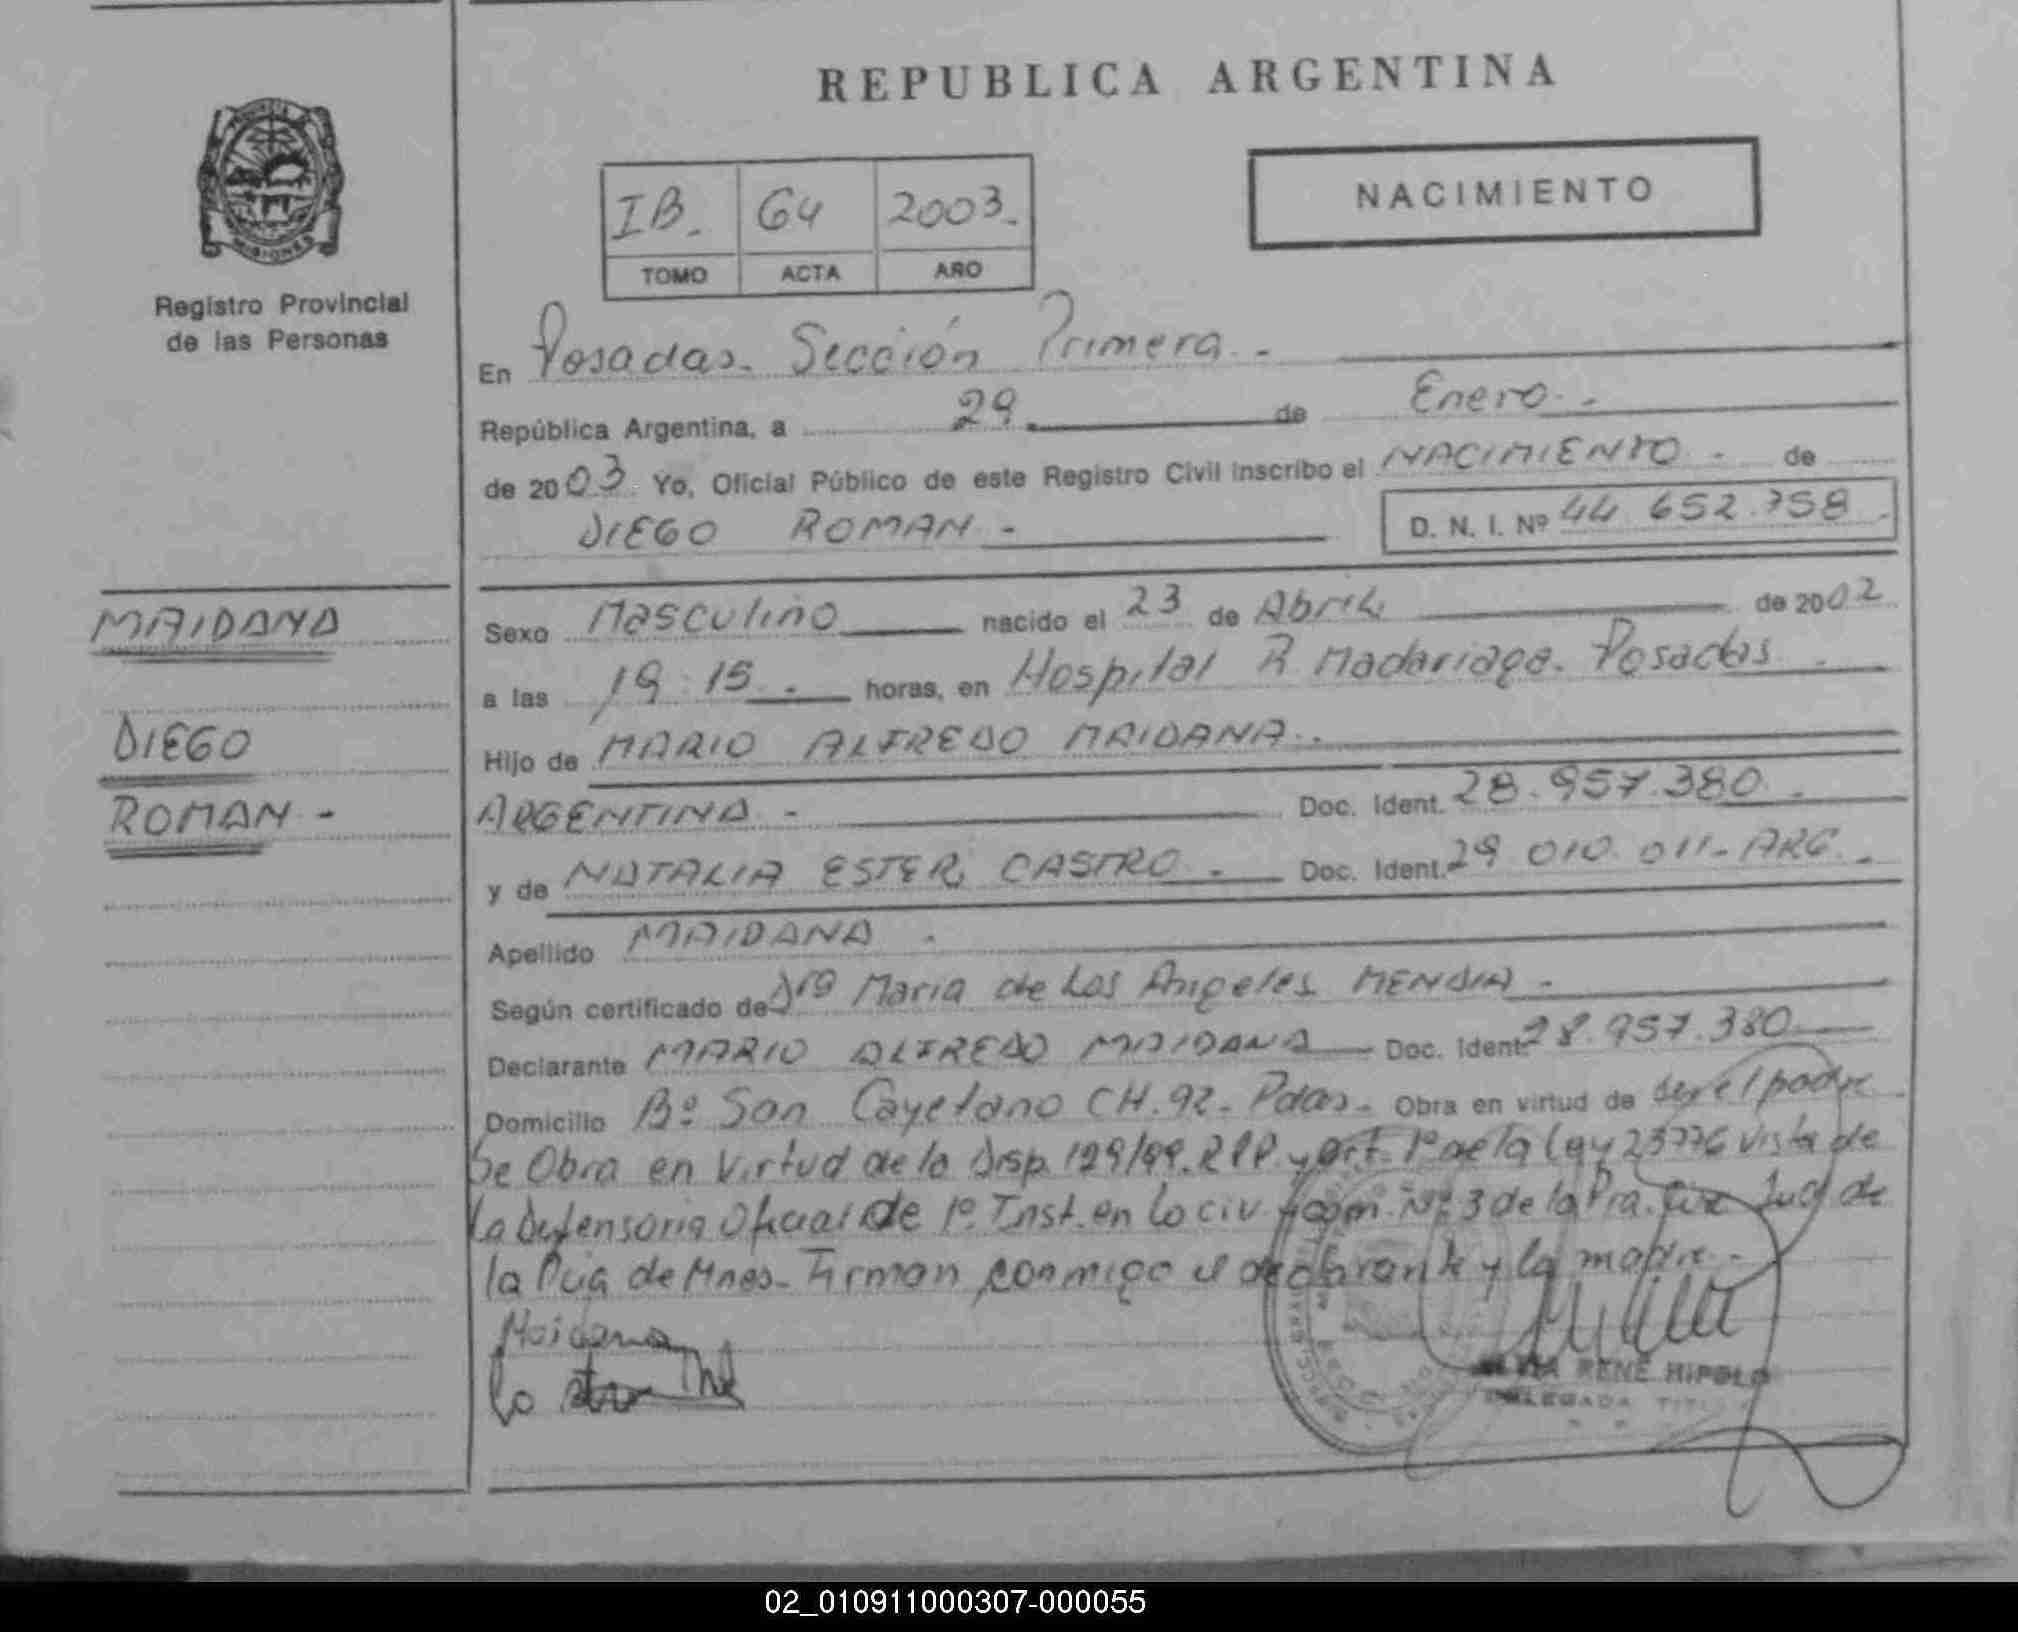 REPUBLICA ARGENTINA
NACIMIENTO
IB. 64 2003.
TOMO ACTA AÑO
MISIONES
Registro Provincial
de las Personas
En Posadas. Sección Primera. -
República Argentina, a 29 de Enero. -
de 2003. Yo, Oficial Público de este Registro Civil inscribo el NACIMIENTO. - de
DIEGO ROMAN - D. N. I. Nº 44 652.758
MAIDANA
DIEGO
ROMAN -
Sexo Masculino nacido el 23 de Abril de 2002
a las 19:15. horas, en Hospital R Madariaga. Posadas
Hijo de MARIO ALFREDO MAIDANA. -
ARGENTINA - Doc. Ident. 28.957.380. -
y de NATALIA ESTER CASTRO. - Doc. Ident. 29 010. 011 - ARG. -
Apellido MAIDANA -
Según certificado de Dra Maria de Los Angeles MENDIA -
Declarante MARIO ALFREDO MAIDANA Doc. Ident. 28.957.380
Domicilio Bº San Cayetano CH. 92 - Pdas - Obra en virtud de ser el padre
Se Obra en Virtud de la Disp. 129/99. RPP y art. 1º de la Ley 23776 vista de
la Defensoria Oficial de 1º Inst. en lo civ. y com. Nº 3 de la Pra. Cir. Jud de
la Pcia de Mnes - Firman conmigo el declarante y la madre. -
Maidana
RENE HIPOLO
DELEGADA TIT
02_010911000307-000055